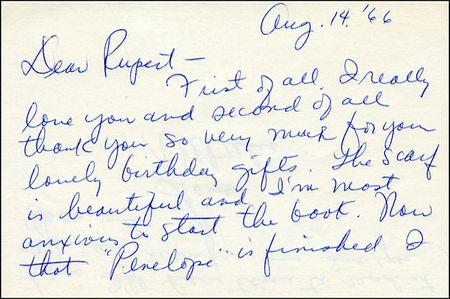 Aug. 14. '66
Dear Rupert —
First of all, I really
love you and second of all
thank you so very much for your
lovely birthday gifts. The scarf
is beautiful and I'm most
anxious to start the book. Now
that "Penelope" is finished I